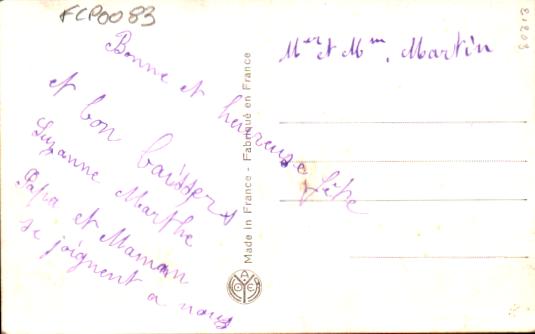 FCP0083
Bonne et heureuse fête
et bon baisser
Suzanne Marthe
Papa et Maman
se joignent a nous
Made in France - Fabriqué en France
Mer et Mme, Martin